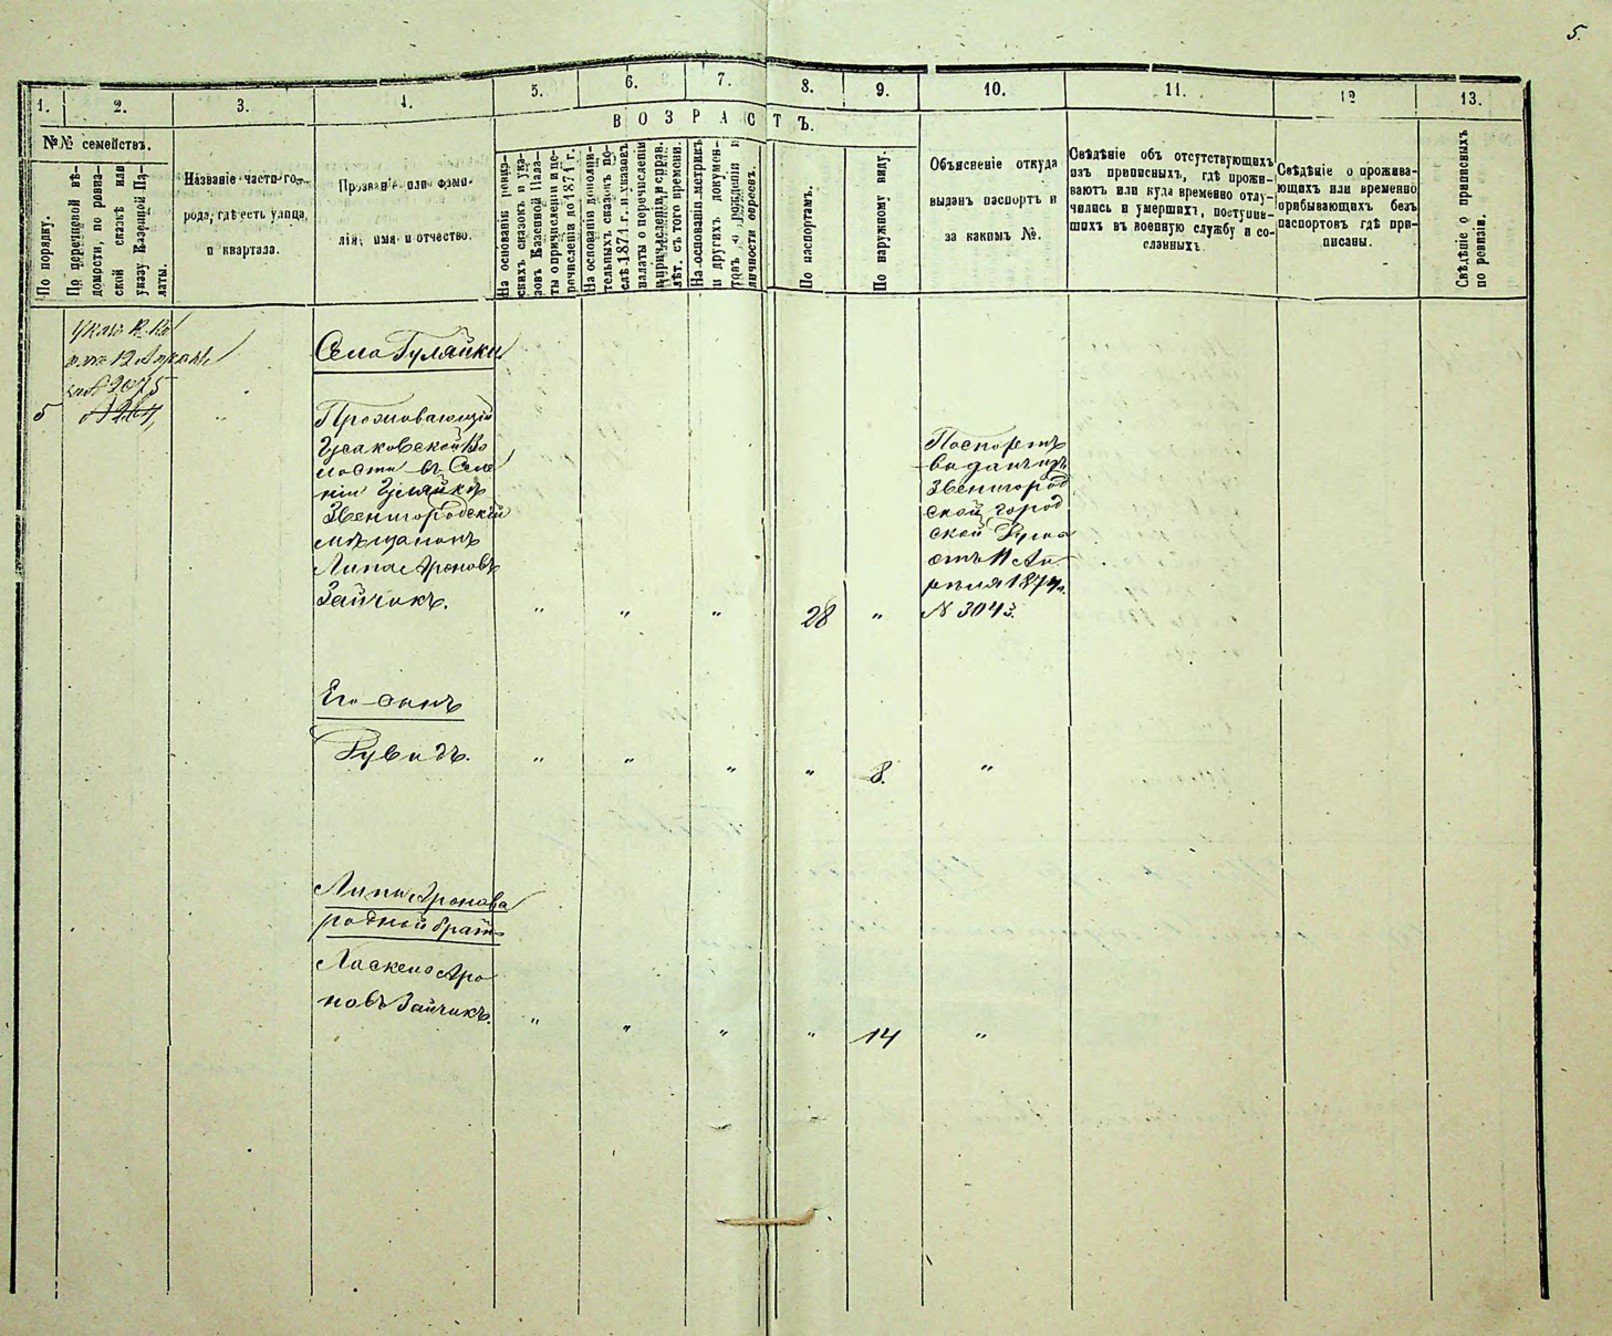 5.
1.
2.
3.
4.
5.
6.
7.
8.
9.
10.
11.
12
13.
№№ семействъ.
ВОЗРАСТЪ.
По порядку.
По перечневой вѣ-
домости, по ревиз-
ской сказкѣ или
указу Казенной Па-
латы.
Названіе части го-
рода, гдѣ есть улица,
и квартала.
Прозваніе или фами-
лія, имя и отчество.
На основаніи ревиз-
скихъ сказокъ и ука-
зовъ Казенной Пала-
ты о причисленіи и пе-
речисленіи до 1871 г.
На основаніи дополни-
тельныхъ сказокъ по-
слѣ 1871 г. и указовъ
палаты о перечисленіи
и причисленіи и справ.
лѣт. съ того времени.
На основаніи метрикъ
и другихъ докумен-
товъ о рожденіи и
личности евреевъ.
По паспортамъ.
По наружному виду.
Объясненіе откуда
выданъ паспортъ и
за какимъ №.
Свѣдѣніе объ отсутствующихъ
изъ приписныхъ, гдѣ прожи-
ваютъ или куда временно отлу-
чились и умершихъ, поступив-
шихъ въ военную службу и со-
сланныхъ.
Свѣдѣніе о прожива-
ющихъ или временно
прибывающихъ безъ
паспортовъ гдѣ при-
писаны.
Свѣдѣніе о приписныхъ
по ревизіи.
12
№ 2075
5
№ 264,
Села Гуляйки
Проживающій
Гусаковской Во
лости въ Селе
ніи Гуляйкѣ
Звенигородскій
мѣщанинъ
Липа Ароновъ
Зайчикъ.
" " " 28 "
Паспортъ
выданъ изъ
Звенигород
ской город
ской Думы
отъ 11 Ап-
рѣля 1874 г.
№ 3043.
Его сынъ
Рувидъ.
" " " " 8. "
Липы Аронова
родной братъ
Ароновъ Зайчикъ.
" " " " 14 "